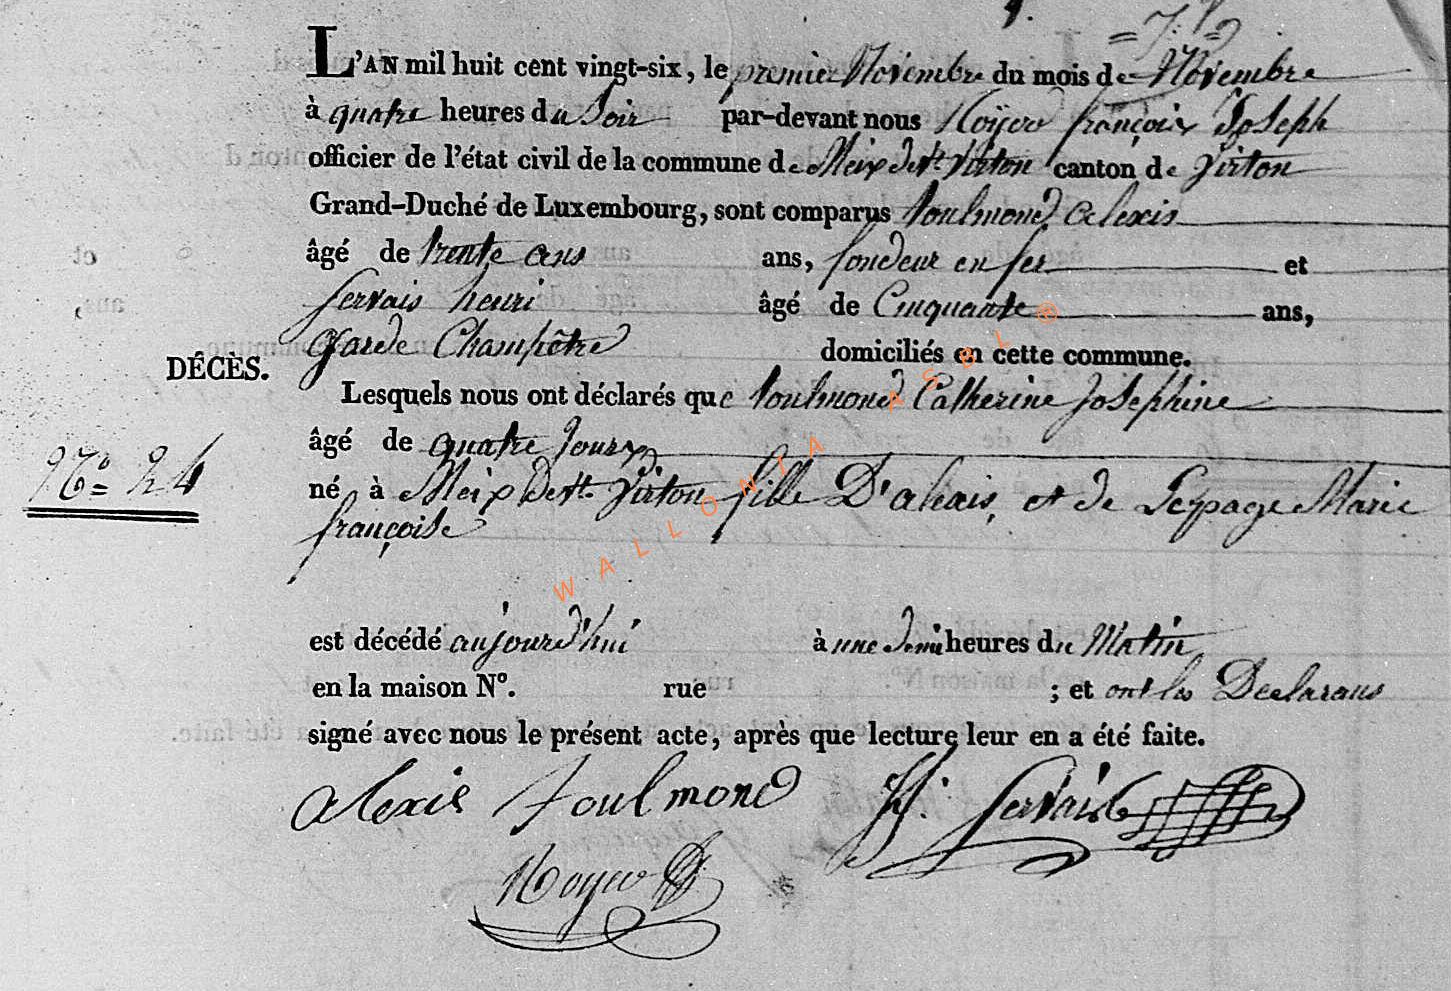 L'AN mil huit cent vingt-six, le premier Novembre du mois de Novembre
à quatre heures du Soir par-devant nous françois Joseph
officier de l'état civil de la commune de Meix devt. Virton canton de Virton
Grand-Duché de Luxembourg, sont comparus toulmond alexis
âgé de trente ans ans, fondeur en fer et
Servais henri âgé de Cinquante ans,
garde Champêtre domiciliés en cette commune.
DÉCÈS.
Lesquels nous ont déclarés que toulmond Catherine Josephine
âgé de quatre Jours
No. 24
né à Meix devt. Virton fille D'alexis, et de Lepage Marie
françoise
est décédé aujourd'hui à une demi heures du Matin
en la maison No. rue ; et ont les Declarans
signé avec nous le présent acte, après que lecture leur en a été faite.
alexis toulmond H. Servais
WALLONIA ASBL ®